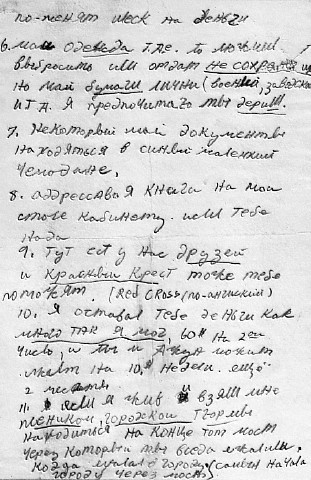 по-менят ческ на деньги
6. мои одежда т.д. ты можишь
выбросить или отдат не сохраняй
но мои бумаги личны (военый, заводски
и т.д. я предпочитаго ты держи.
7. Некоторый мои документы
находяться в синвый маленкий
чемодане.
8. адрессавая книга на мои
столе кабинету. если тебе
нада
9. тут ест у нас друзей
и красный крест тоже тебе
поможят. (Red Cross (по-ангиский)
10. Я оставал тебе деньги как
много так я мог, 60 на 2ой
число, и ты и Джун можит
жить на 10,я недели. ещё
2 месяты
11. если я жив и взят мне
пленком, городской тюрмы
находиться на конце тот мост
через которвый мы вседа ехали,
когда ехали в город (самый начала
городу через мост)